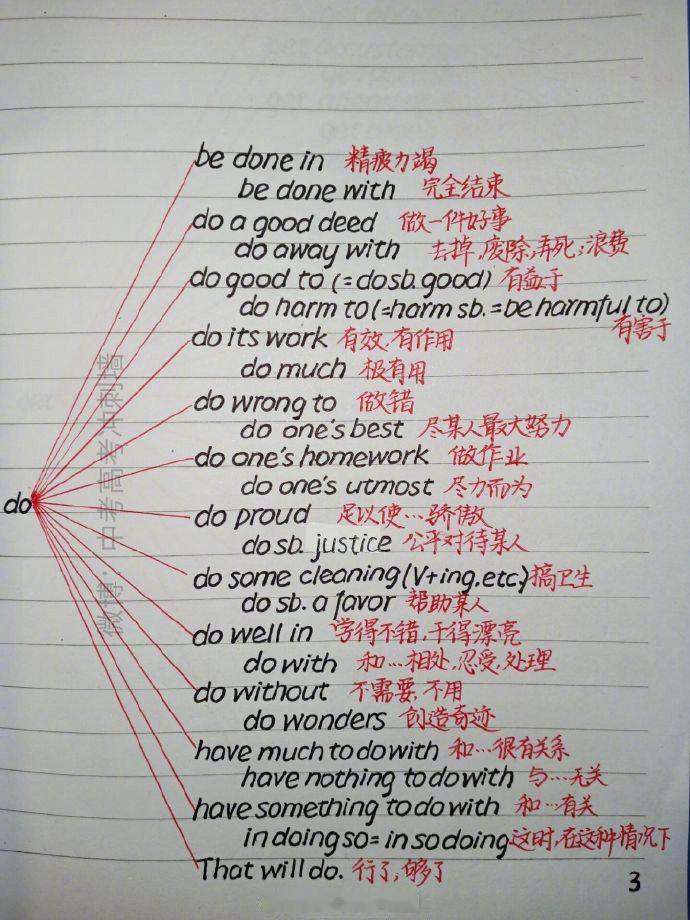 be done in 精疲力竭
be done with 完全结束
do a good deed 做一件好事
do away with 去掉,废除,弄死;浪费
do good to (=do sb. good) 有益于
do harm to (=harm sb. =be harmful to)
有害于
do its work 有效,有作用
do much 极有用
do wrong to 做错
do one's best 尽某人最大努力
do one's homework 做作业
do one's utmost 尽力而为
do
do proud 足以使…骄傲
do sb. justice 公平对待某人
do some cleaning (V+ing, etc.) 搞卫生
do sb. a favor 帮助某人
do well in 学得不错,干得漂亮
do with 和…相处,忍受,处理
do without 不需要,不用
do wonders 创造奇迹
have much to do with 和…很有关系
have nothing to do with 与…无关
have something to do with 和…有关
in doing so = in so doing 这时,在这种情况下
That will do. 行了,够了
3
微博:中考高考冲刺墙